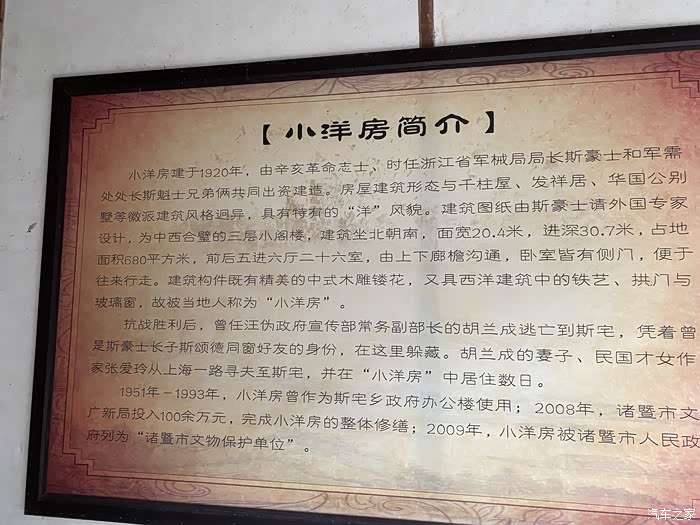 【小洋房简介】
小洋房建于1920年，由辛亥革命志士、时任浙江省军械局局长斯豪士和军需
处处长斯魁士兄弟俩共同出资建造。房屋建筑形态与千柱屋、发祥居、华国公别
墅等徽派建筑风格迥异，具有特有的“洋”风貌。建筑图纸由斯豪士请外国专家
设计，为中西合璧的三层小阁楼，建筑坐北朝南，面宽20.4米，进深30.7米，占地
面积680平方米，前后五进六厅二十六室，由上下廊檐沟通，卧室皆有侧门，便于
往来行走。建筑构件既有精美的中式木雕镂花，又具西洋建筑中的铁艺、拱门与
玻璃窗，故被当地人称为“小洋房”。
抗战胜利后，曾任汪伪政府宣传部常务副部长的胡兰成逃亡到斯宅，凭着曾
是斯豪士长子斯颂德同窗好友的身份，在这里躲藏。胡兰成的妻子、民国才女作
家张爱玲从上海一路寻夫至斯宅，并在“小洋房”中居住数日。
1951年－1993年，小洋房曾作为斯宅乡政府办公楼使用；2008年，诸暨市文
广新局投入100余万元，完成小洋房的整体修缮；2009年，小洋房被诸暨市人民政
府列为“诸暨市文物保护单位”。
汽车之家